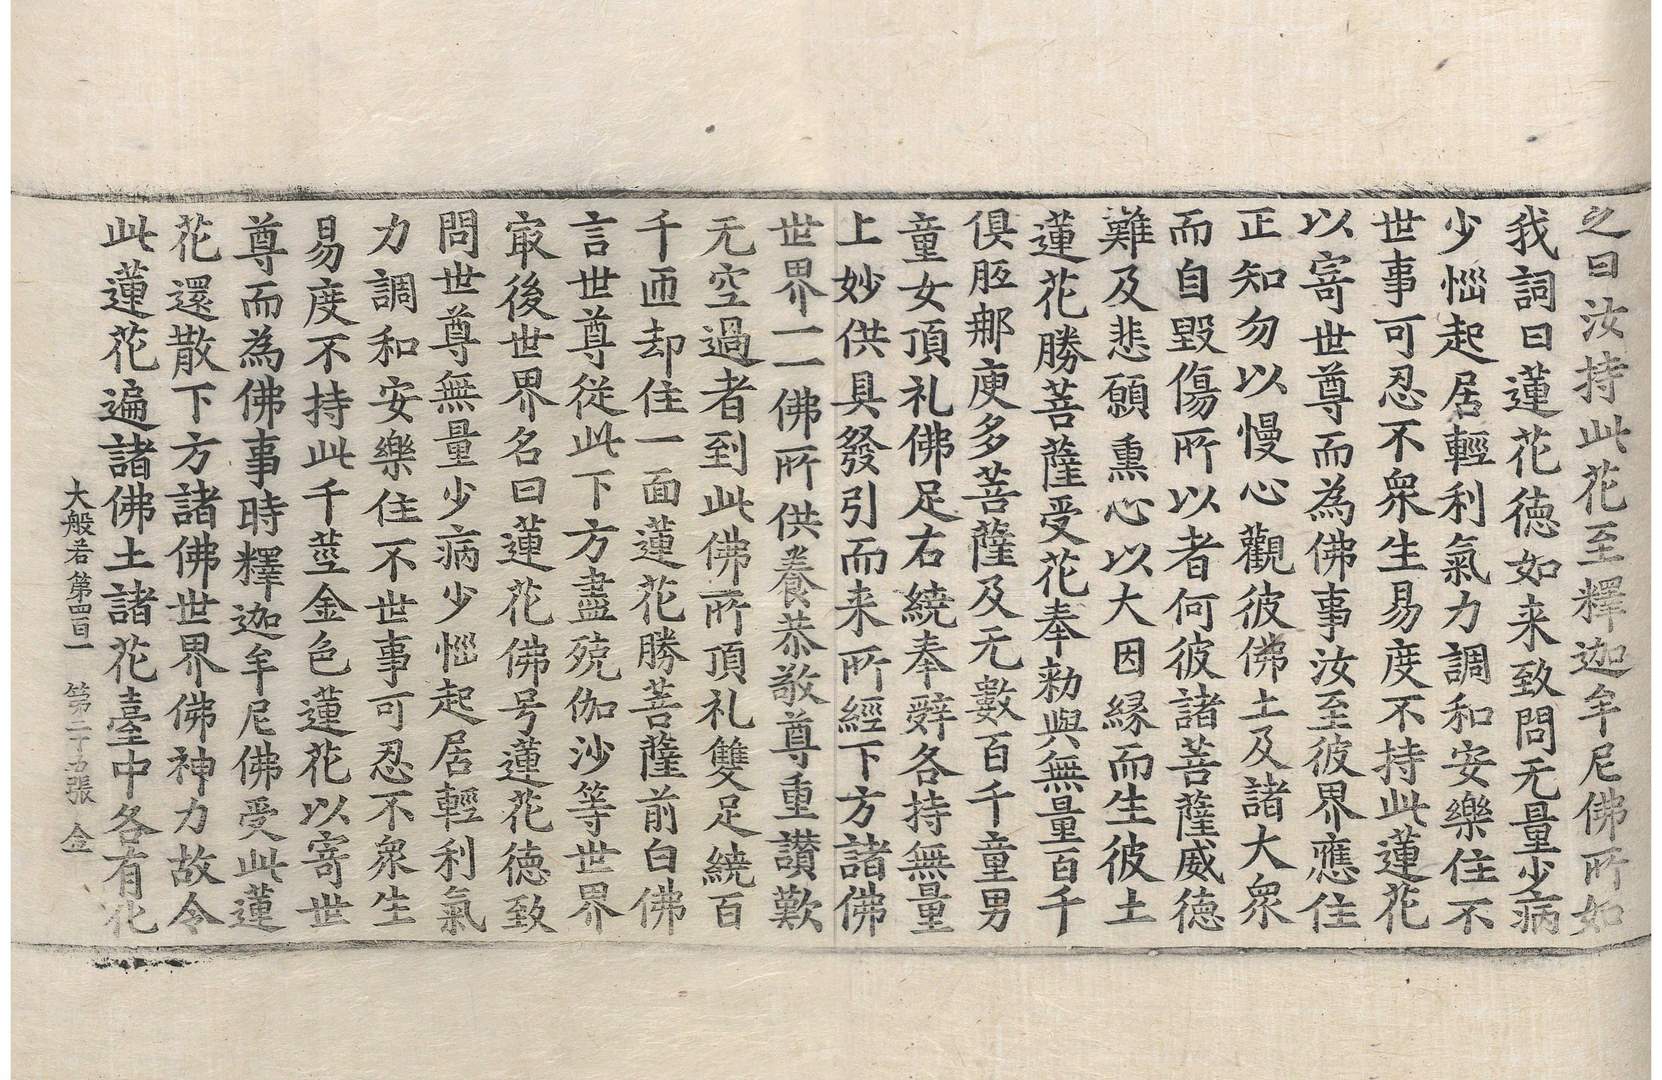 之曰汝持此花至釋迦牟尼佛所如
我詞曰蓮花德如来致問无量少病
少惱起居輕利氣力調和安樂住不
世事可忍不衆生易度不持此蓮花
以寄世尊而為佛事汝至彼界應住
正知勿以慢心觀彼佛土及諸大衆
而自毀傷所以者何彼諸菩薩威德
難及悲願熏心以大因緣而生彼土
蓮花勝菩薩受花奉勑與無量百千
俱胝那庾多菩薩及无數百千童男
童女頂礼佛足右繞奉辝各持無量
上妙供具發引而来所經下方諸佛
世界一一佛所供養恭敬尊重讃歎
无空過者到此佛所頂礼雙足繞百
千匝却住一面蓮花勝菩薩前白佛
言世尊從此下方盡殑伽沙等世界
㝡後世界名曰蓮花佛号蓮花德致
問世尊無量少病少惱起居輕利氣
力調和安樂住不世事可忍不衆生
易度不持此千莖金色蓮花以寄世
尊而為佛事時釋迦牟尼佛受此蓮
花還散下方諸佛世界佛神力故令
此蓮花遍諸佛土諸花臺中各有化
大般若第四百一 第二十五張 金